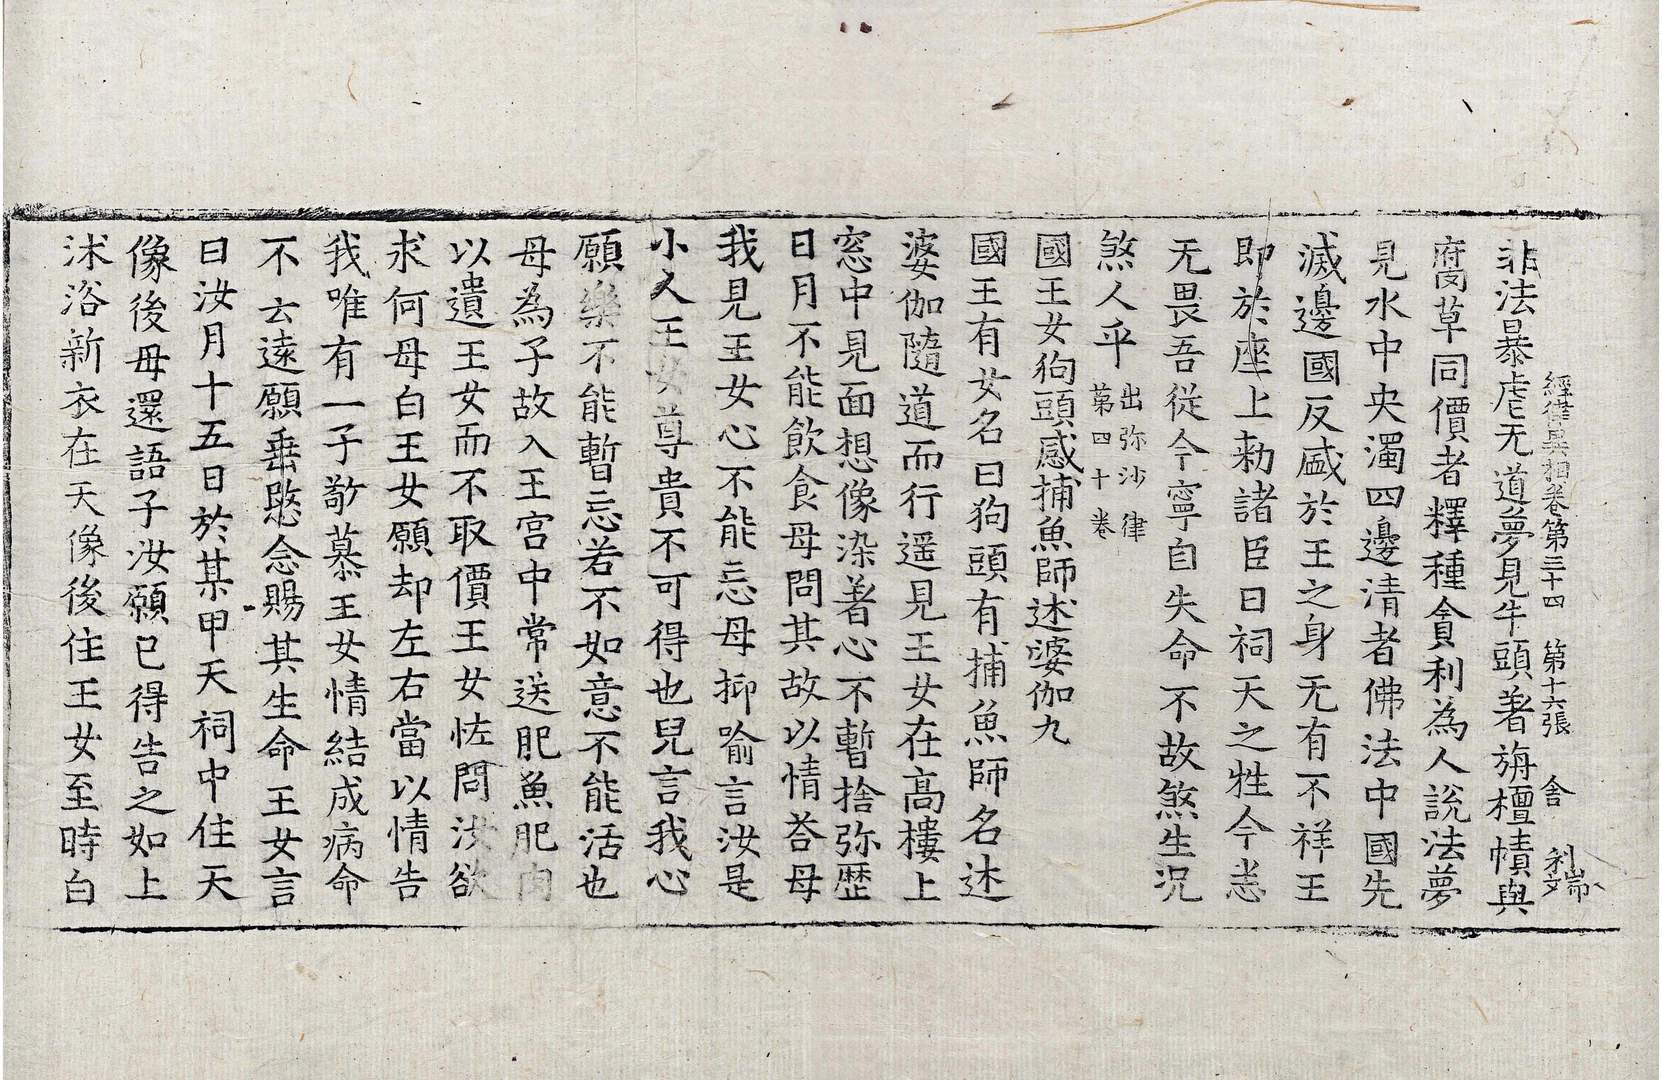 經律異相卷第三十四 第十六張 舍
非法暴虐无道夢見牛頭著旃檀㯂與
腐草同價者釋種貪利為人說法夢
見水中央濁四邊清者佛法中國先
滅邊國反盛於王之身无有不祥王
即於座上勑諸臣曰祠天之牲今悉
无畏吾從今寧自失命不故煞生況
煞人乎 出弥沙律第四十卷
國王女狗頭感捕魚師述婆伽九
國王有女名曰狗頭有捕魚師名述
婆伽隨道而行遥見王女在高樓上
窓中見面想像染著心不暫捨弥歷
日月不能飲食母問其故以情荅母
我見王女心不能忘母抑喻言汝是
小人王女尊貴不可得也兒言我心
願樂不能暫忘若不如意不能活也
母為子故入王宮中常送肥魚肥肉
以遺王女而不取價王女恠問汝欲
求何母白王女願却左右當以情告
我唯有一子敬慕王女情結成病命
不云遠願垂愍念賜其生命王女言
曰汝月十五日於某甲天祠中住天
像後母還語子汝願已得告之如上
沐浴新衣在天像後住王女至時白